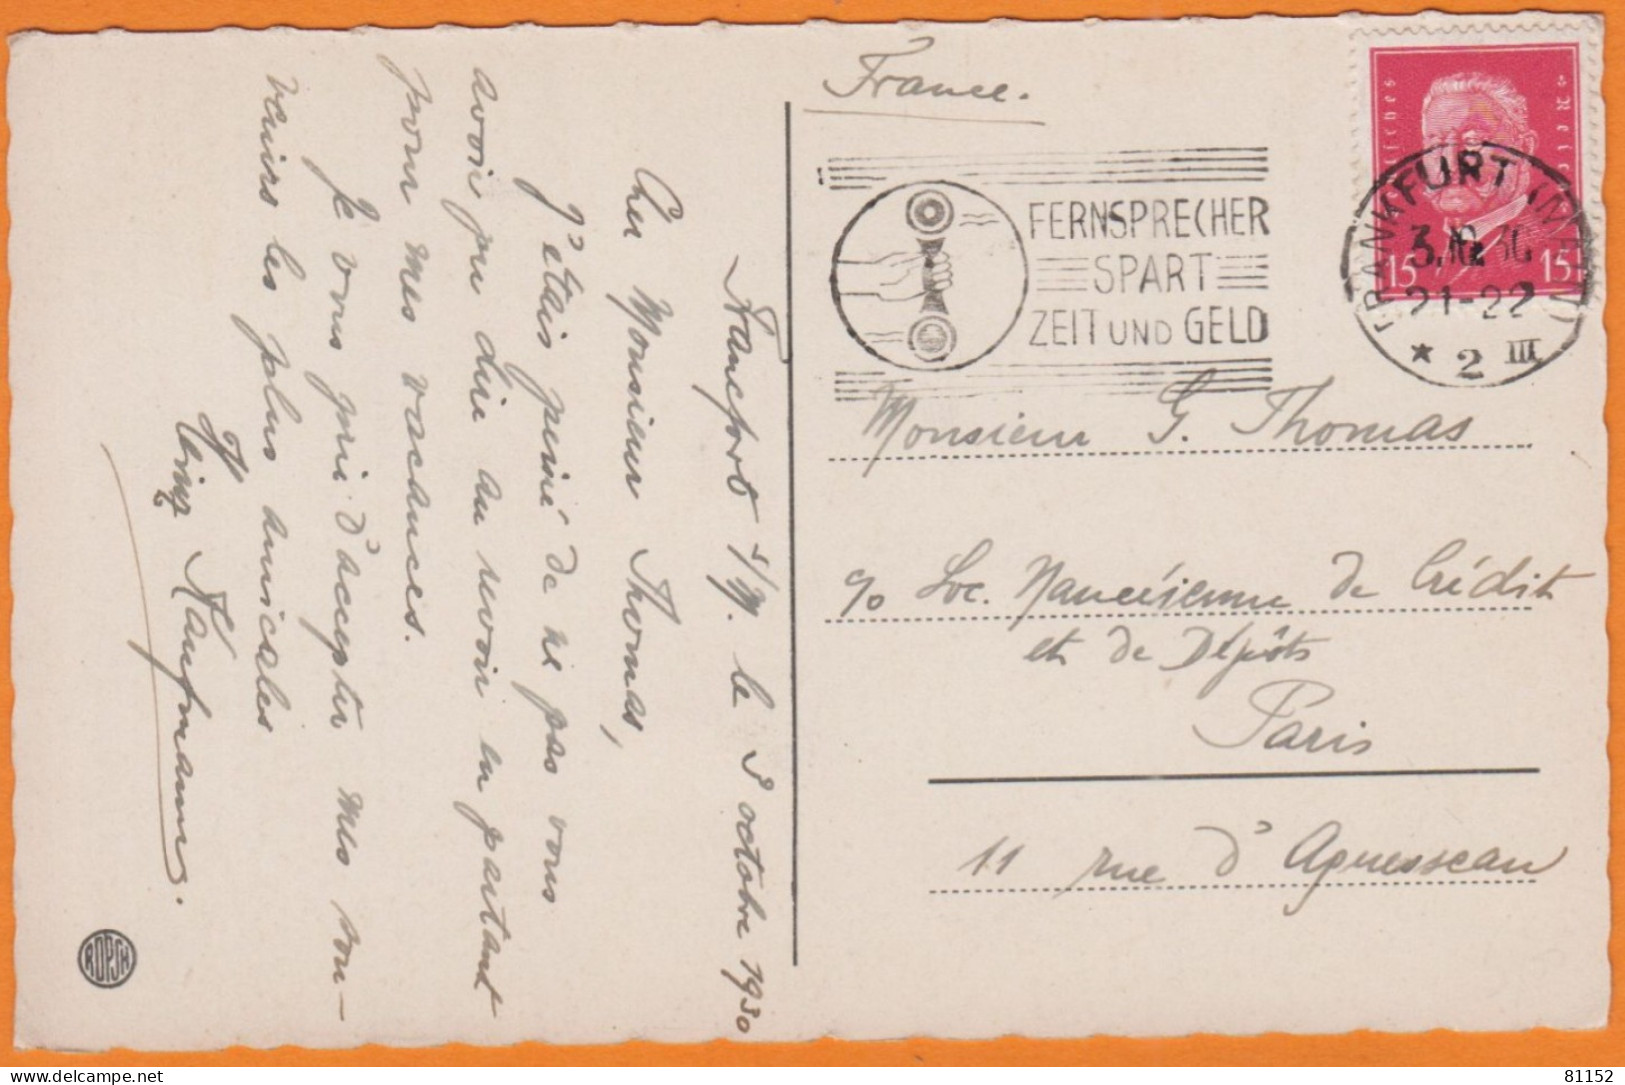 Francfort s/M. le 3 octobre 1930
Cher Monsieur Thomas,
J'étais peiné de ne pas vous
avoir pu dire au revoir en partant
pour mes vacances.
Je vous prie d'accepter mes sou-
venirs les plus amicales
Heinz Kaufmann.
ROPSH
France.
FERNSPRECHER
SPART
ZEIT UND GELD
Deutsches Reich
15 15
FRANKFURT (MAIN)
3.10.30
21-22
* 2 III
Monsieur G. Thomas
c/o Soc. Nancéienne de Crédit
et de Dépôts
Paris
11 rue d'Aguesseau
81152